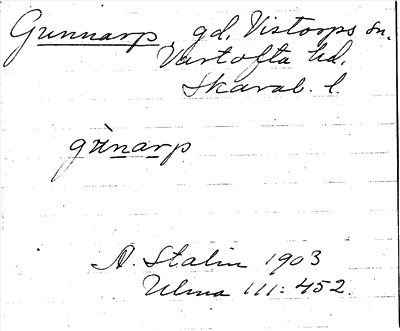 Gunnarp, gd, Vistorps sn.
Vartofta hd.
Skarab. l.
gùnarp
A. Stalin 1903
Ulma 111: 452